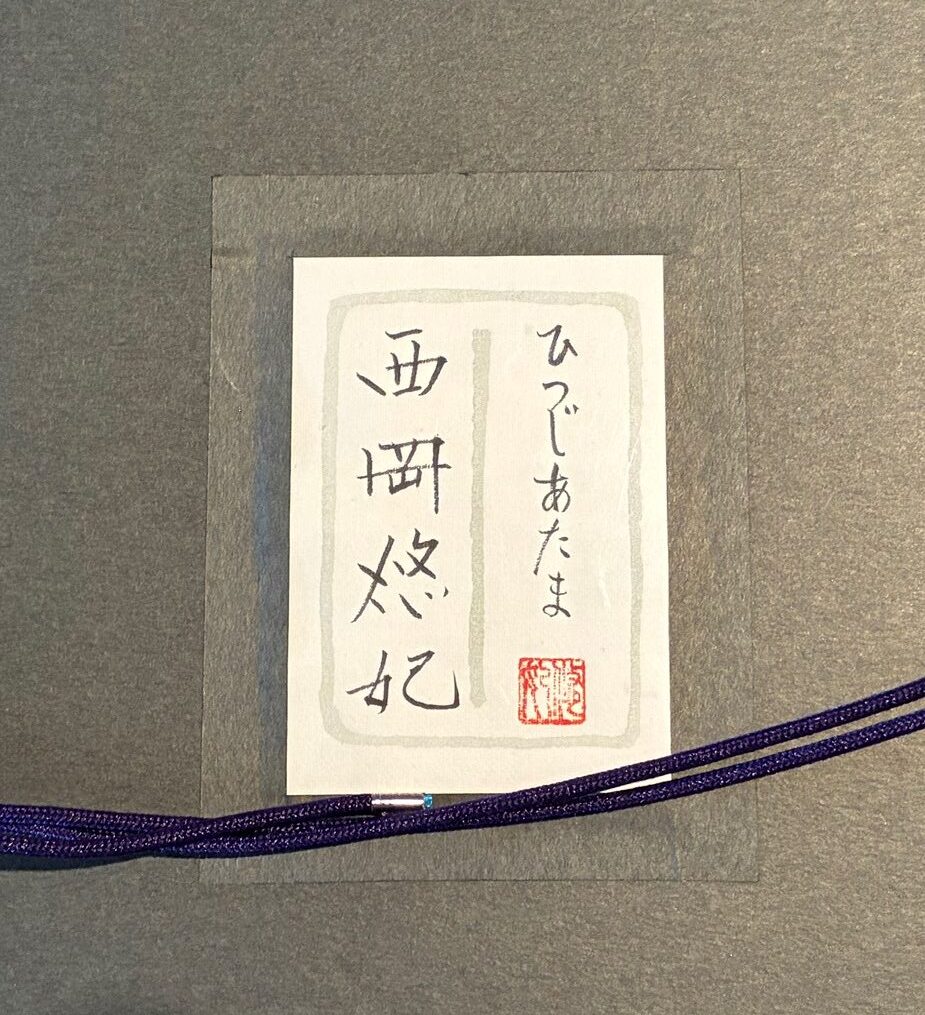 ひつじあたま
西岡悠妃